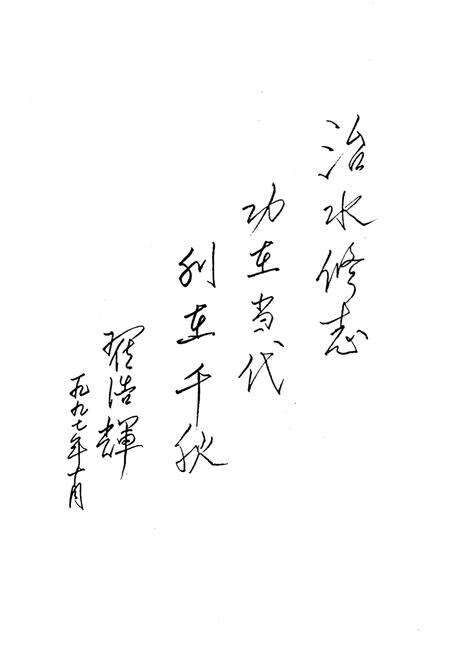 治水修志
功在当代
利在千秋
翟浩辉
一九九七年十月